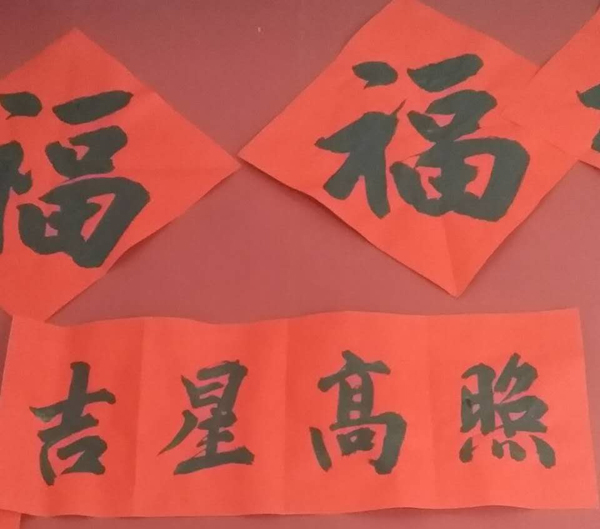 福
福
吉星高照